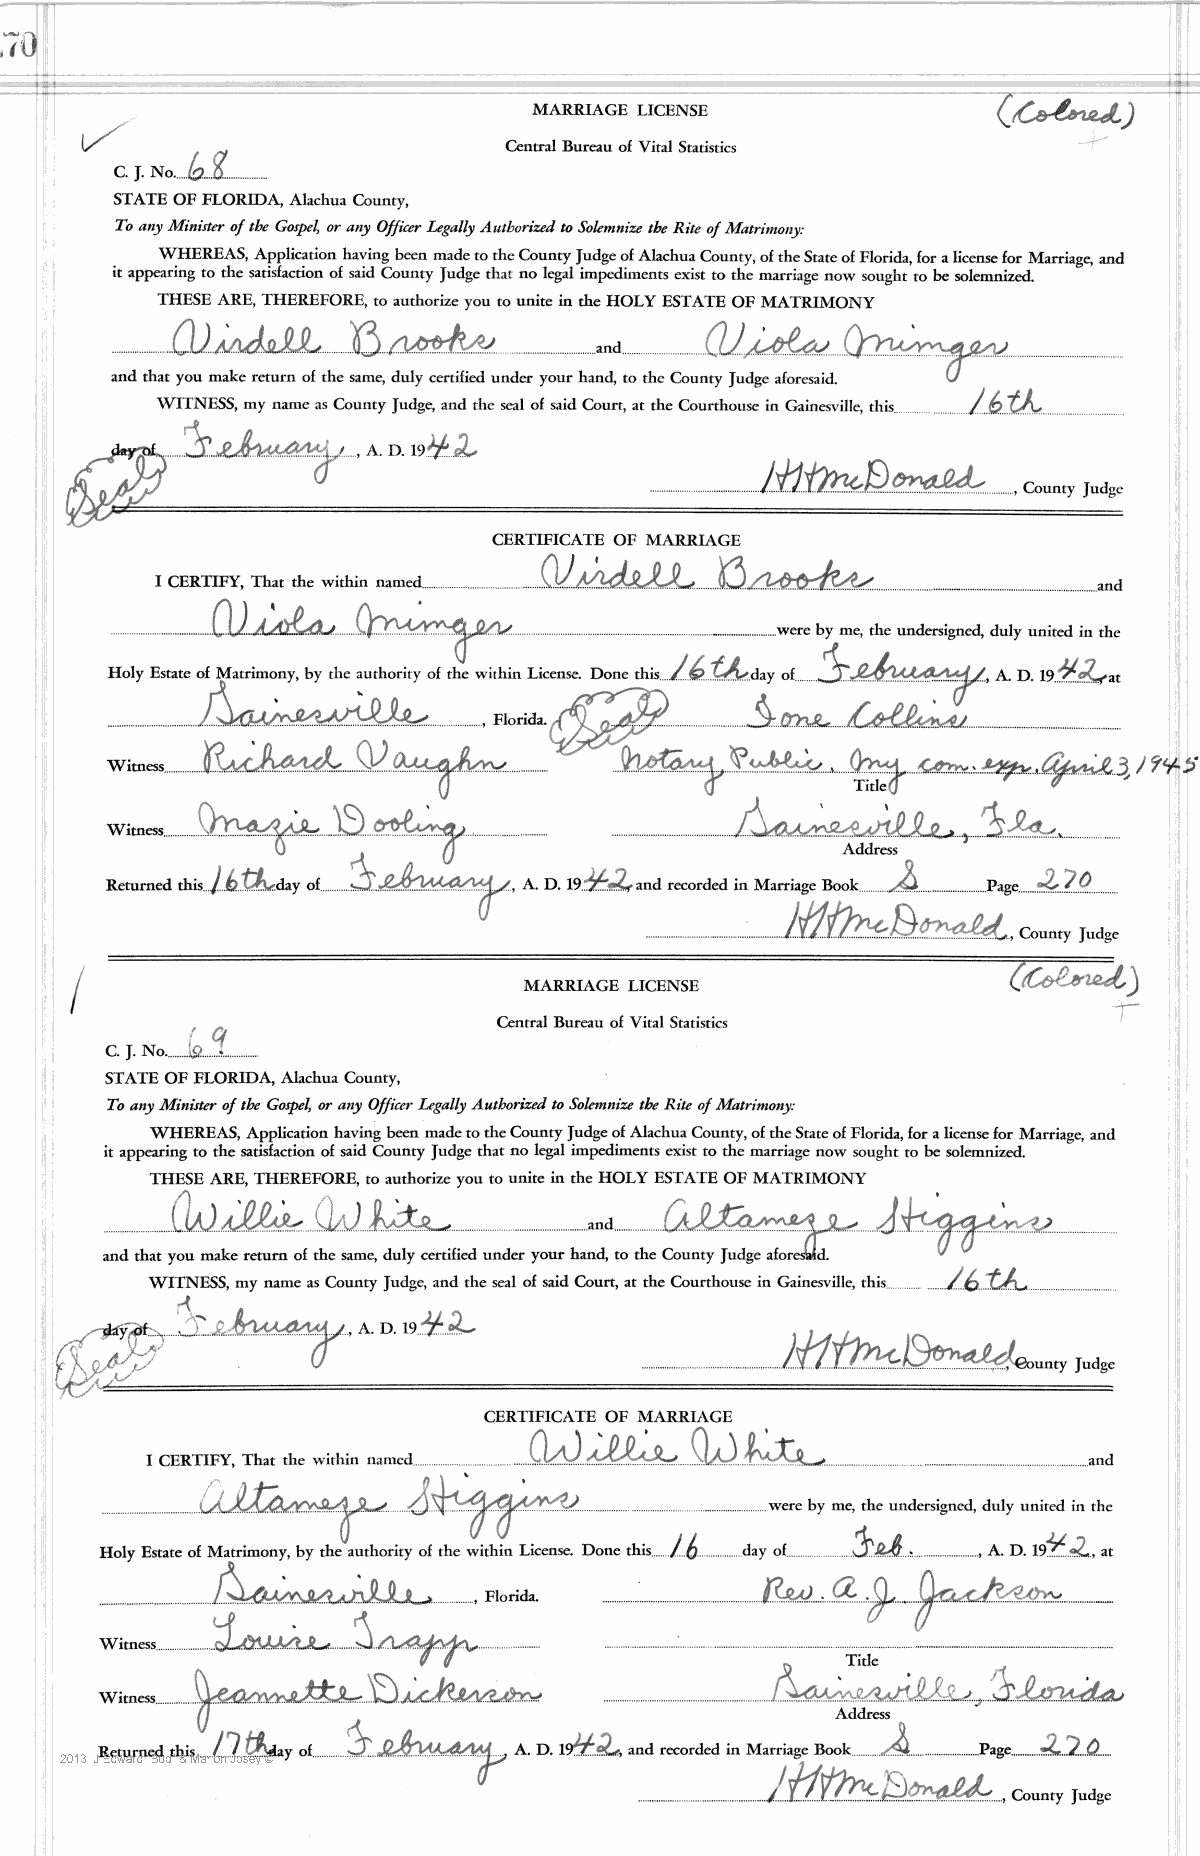 70
MARRIAGE LICENSE
(Colored)
Central Bureau of Vital Statistics
C. J. No. 68
STATE OF FLORIDA, Alachua County,
To any Minister of the Gospel, or any Officer Legally Authorized to Solemnize the Rite of Matrimony:
WHEREAS, Application having been made to the County Judge of Alachua County, of the State of Florida, for a license for Marriage, and
it appearing to the satisfaction of said County Judge that no legal impediments exist to the marriage now sought to be solemnized.
THESE ARE, THEREFORE, to authorize you to unite in the HOLY ESTATE OF MATRIMONY
Virdell Brooks and Viola Mimger
and that you make return of the same, duly certified under your hand, to the County Judge aforesaid.
WITNESS, my name as County Judge, and the seal of said Court, at the Courthouse in Gainesville, this 16th
day of February, A. D. 1942
Seal
HHMcDonald, County Judge
CERTIFICATE OF MARRIAGE
I CERTIFY, That the within named Virdell Brooks and
Viola Mimger were by me, the undersigned, duly united in the
Holy Estate of Matrimony, by the authority of the within License. Done this 16th day of February, A. D. 1942, at
Gainesville, Florida. Seal Ione Collins
Witness Richard Vaughn Notary Public. My com. exp. April 3, 1945
Title
Witness Mazie Dooling Gainesville, Fla.
Address
Returned this 16th day of February, A. D. 1942, and recorded in Marriage Book S Page 270
HHMcDonald, County Judge
(Colored)
MARRIAGE LICENSE
Central Bureau of Vital Statistics
C. J. No. 69
STATE OF FLORIDA, Alachua County,
To any Minister of the Gospel, or any Officer Legally Authorized to Solemnize the Rite of Matrimony:
WHEREAS, Application having been made to the County Judge of Alachua County, of the State of Florida, for a license for Marriage, and
it appearing to the satisfaction of said County Judge that no legal impediments exist to the marriage now sought to be solemnized.
THESE ARE, THEREFORE, to authorize you to unite in the HOLY ESTATE OF MATRIMONY
Willie White and Altameze Higgins
and that you make return of the same, duly certified under your hand, to the County Judge aforesaid.
WITNESS, my name as County Judge, and the seal of said Court, at the Courthouse in Gainesville, this 16th
day of February, A. D. 1942
Seal
HHMcDonald, County Judge
CERTIFICATE OF MARRIAGE
I CERTIFY, That the within named Willie White and
Altameze Higgins were by me, the undersigned, duly united in the
Holy Estate of Matrimony, by the authority of the within License. Done this 16 day of Feb., A. D. 1942, at
Gainesville, Florida. Rev. A. J. Jackson
Witness Louise Trapp
Title
Witness Jeannette Dickerson Gainesville, Florida
Address
Returned this 17th day of February, A. D. 1942, and recorded in Marriage Book S Page 270
2013 J Edward "Bud" & Marion Josey ©
HHMcDonald, County Judge